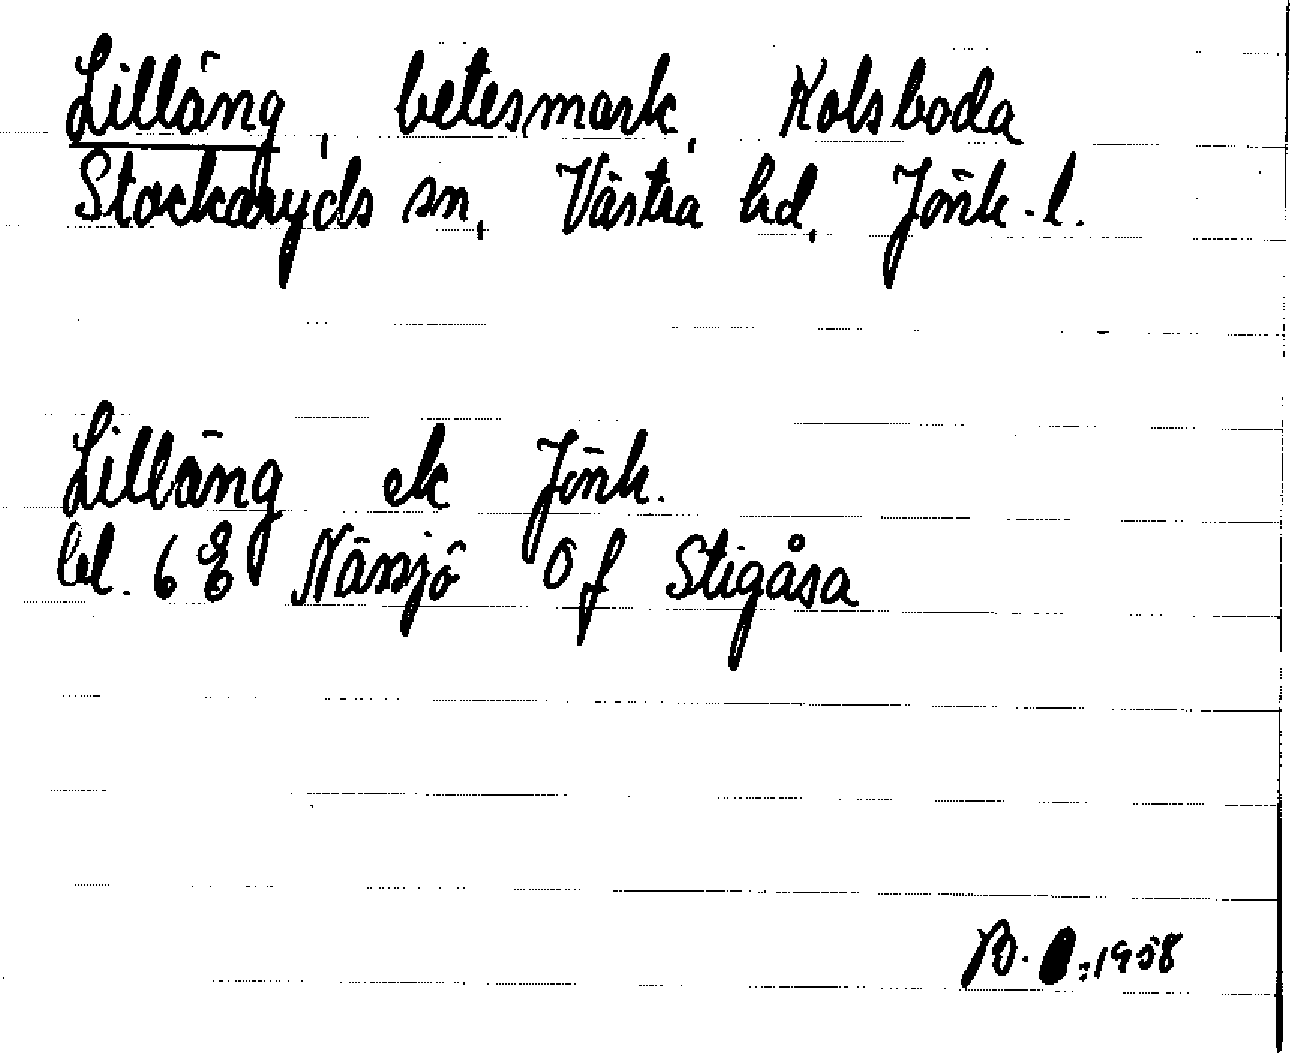 Lilläng, betesmark, Kolsboda
Stockaryds sn, Västra hd, Jönk. l.
Lilläng ek Jönk.
bl. 6 E Nässjö 0 f Stigåsa
B. :1958